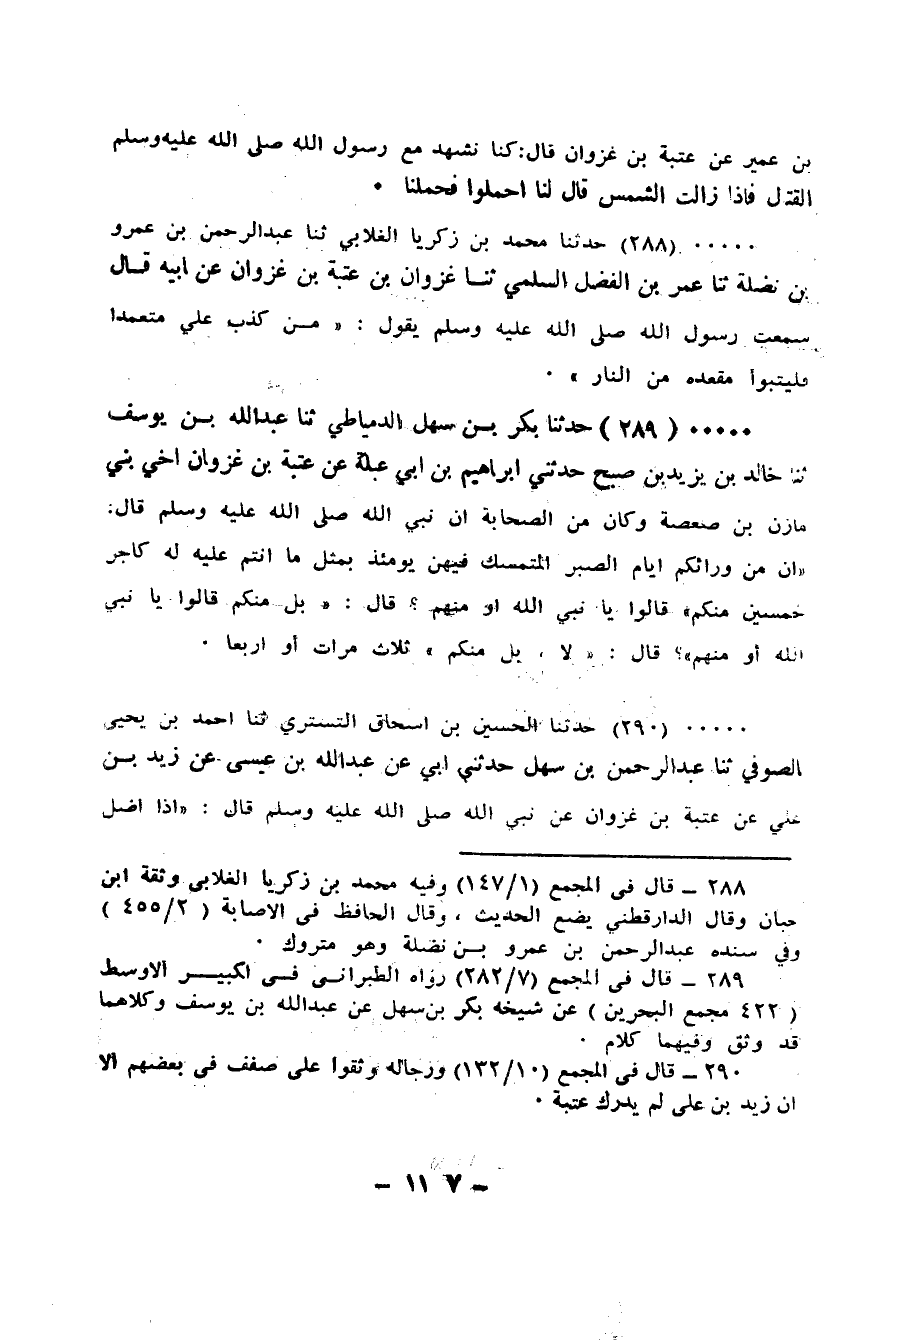 بن عمير عن عتبة بن غزوان قال:كنا نشهد مع رسول الله صلى الله عليه وسلم
القتال فاذا زالت الشمس قال لنا احملوا فحملنا ٠
٠٠٠٠٠ (٢٨٨) حدثنا محمد بن زكريا الغلابي ثنا عبدالرحمن بن عمرو
بن نضلة ثنا عمر بن الفضل السلمي ثنا غزوان بن عتبة بن غزوان عن ابيه قال
سمعت رسول الله صلى الله عليه وسلم يقول : « من كذب علي متعمدا
فليتبوأ مقعده من النار » ٠
٠٠٠٠٠ ( ٢٨٩ ) حدثنا بكر بن سهل الدمياطي ثنا عبدالله بن يوسف
ثنا خالد بن يزيدبن صبيح حدثني ابراهيم بن ابي عبلة عن عتبة بن غزوان اخي بني
مازن بن صعصعة وكان من الصحابة ان نبي الله صلى الله عليه وسلم قال:
«ان من ورائكم ايام الصبر المتمسك فيهن يومئذ بمثل ما انتم عليه له كاجر
خمسين منكم» قالوا يا نبي الله او منهم ؟ قال : « بل منكم قالوا يا نبي
الله أو منهم»؟ قال : « لا ، بل منكم » ثلاث مرات أو اربعا ٠
٠٠٠٠٠ (٢٩٠) حدثنا الحسين بن اسحاق التستري ثنا احمد بن يحيى
الصوفي ثنا عبدالرحمن بن سهل حدثني ابي عن عبدالله بن عيسى عن زيد بن
علي عن عتبة بن غزوان عن نبي الله صلى الله عليه وسلم قال : «اذا اضل
٢٨٨ ـ قال فى المجمع (١٤٧/١) وفيه محمد بن زكريا الغلابى وثقة ابن
حبان وقال الدارقطني يضع الحديث ، وقال الحافظ فى الاصابة ( ٤٥٥/٢ )
وفي سنده عبدالرحمن بن عمرو بن نضلة وهو متروك ٠
٢٨٩ ـ قال فى المجمع (٢٨٢/٧) رواه الطبرانى فى الكبير الاوسط
( ٤٢٢ مجمع البحرين ) عن شيخه بكر بن سهل عن عبدالله بن يوسف وكلاهما
قد وثق وفيهما كلام ٠
٢٩٠ ـ قال فى المجمع (١٣٢/١٠) ورجاله وثقوا على ضعف فى بعضهم الا
ان زيد بن على لم يدرك عتبة ٠
- ١١٧ -